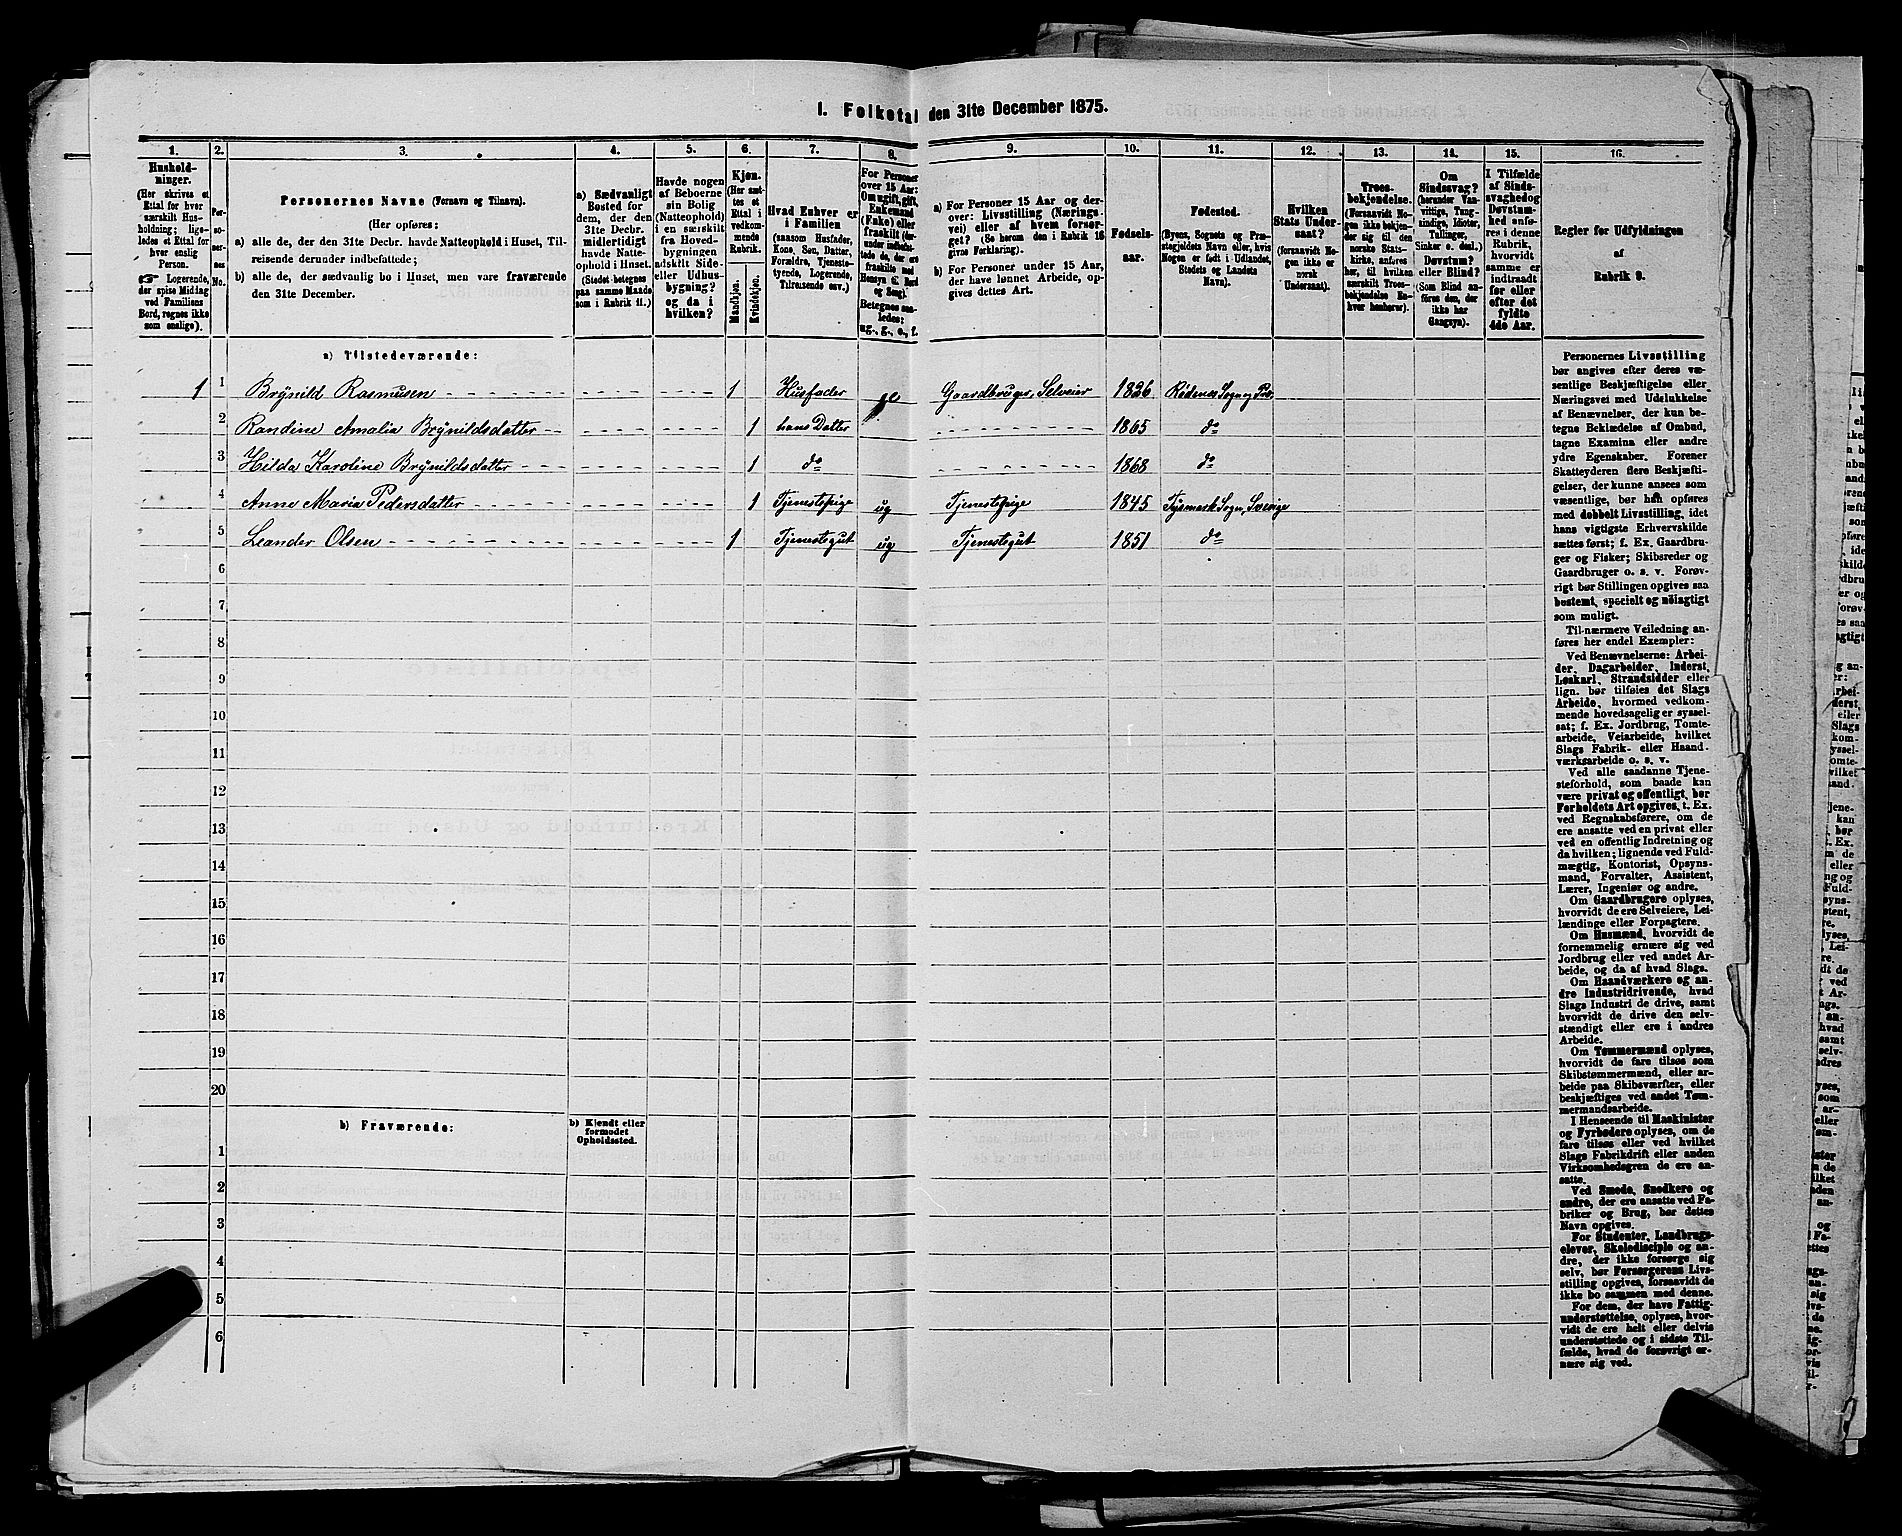 I. Folketal den 31te December 1875.
1. 2. 3. 4. 5. 6. 7. 8. 9. 10. 11. 12. 13. 14. 15. 16.
Hushold-
ninger.
(Her skrives et
Ettal for hver
særskilt Hus-
holdning; lige-
ledes et Ettal for
hver enslig
Person.
☞ Logerende,
der spise Middag
ved Familiens
Bord, regnes ikke
som enslige).
Per-
soner-
nes
No.
Personernes Navne (Fornavn og Tilnavn).
(Her opføres:
a) alle de, der den 31te Decbr. havde Natteophold i Huset, Til-
reisende derunder indbefattede;
b) alle de, der sædvanlig bo i Huset, men vare fraværende
den 31te December.
a) Sædvanligt
Bosted for
dem, der den
31te Decbr.
midlertidigt
havde Natte-
ophold i Huset.
(Stedet betegnes
paa samme Maade
som i Rubrik 11.)
Havde nogen
af Beboerne
sin Bolig
(Natteophold)
i en særskilt
fra Hoved-
bygningen
adskilt Side-
eller Udhus-
bygning?
og da i
hvilken?
Kjøn.
(Her sæt-
tes et
Ettal i
vedkom-
mende
Rubrik.
Mandkjøn.
Kvindekjøn.
Hvad Enhver er
i Familien
(saasom Husfader,
Kone, Søn, Datter,
Forældre, Tjeneste-
tyende, Logerende,
Tilreisende osv.)
For Personer
over 15 Aar:
Om ugift, gift,
Enkemand
(Enke) eller
fraskilt
Betegnes saa-
ledes:
ug., g., e., f.
a) For Personer 15 Aar og der-
over: Livsstilling (Nærings-
vei) eller af hvem forsør-
get? (Se herom den i Rubrik 16
givne Forklaring).
b) For Personer under 15 Aar,
der have lønnet Arbeide, op-
gives dettes Art.
Fødsels-
aar.
Fødested.
(Byens, Sognets og Præ-
stegjeldets Navn eller, hvis
Nogen er født i Udlandet,
Stedets og Landets
Navn).
Hvilken
Stats Under-
saat?
(forsaavidt No-
gen ikke er
norsk
Undersaat).
Troes-
bekjendelse.
(Forsaavidt No-
gen ikke bekjen-
der sig til den
norske Stats-
kirke, anføres
her, til hvilken
særskilt Troes-
bekjendelse En-
hver henhører).
Om
Sindssvag?
(herunder Van-
vittige, Tung-
sindige, Idioter,
Tullinger,
Sinker o. desl.)
Døvstum?
eller Blind?
(Som Blind an-
føres den, der
ikke har
Gangsyn).
I Tilfælde
af Sinds-
svaghed og
Døvstum-
hed anfø-
res i denne
Rubrik,
hvorvidt
samme er
indtraadt
før eller
efter det
fyldte
4de Aar.
Regler for Udfyldningen
af
Rubrik 9.
a) Tilstedeværende:
1 1 Brynild Rasmusen 1 Husfader e Gaardbruger, Selveier 1826
2 Randine Amalia Brynildsdatter 1 hans Datter 1865 do
3 Hilda Karoline Brynildsdatter 1 do 1868 do
4 Anne Maria Pedersdatter 1 Tjenestepige ug Tjenestepige 1845 Sogn, Sverige
5 Leander Olsen 1 Tjenestegut ug Tjenestegut 1851 do
6
7
8
9
10
11
12
13
14
15
16
17
18
19
20
b) Fraværende:
b) Kjendt eller
formodet
Opholdssted.
1
2
3
4
5
6
Personernes Livsstilling
bør angives efter deres væ-
sentlige Beskjæftigelse eller
Næringsvei med Udelukkelse
af Benævnelser, der kun be-
tegne Beklædelse af Ombud,
tagne Examina eller andre
ydre Egenskaber. Forener
Skatteyderen flere Beskjæfti-
gelser, der kunne ansees som
væsentlige, bør han opføres
med dobbelt Livsstilling, idet
hans vigtigste Erhvervskilde
sættes først; f. Ex. Gaardbru-
ger og Fisker; Skibsreder og
Gaardbruger o. s. v. Forøv-
rigt bør Stillingen opgives saa
bestemt, specielt og nöiagtigt
som muligt.
Til nærmere Veiledning an-
føres her endel Exempler:
Ved Benævnelserne: Arbei-
der, Dagarbeider, Inderst,
Løskarl, Strandsidder eller
lign. bør tilføies det Slags
Arbeide, hvormed vedkom-
mende hovedsagelig er syssel-
sat; f. Ex. Jordbrug, Tomte-
arbeide, Veiarbeide, hvilket
Slags Fabrik- eller Haand-
værksarbeide o. s. v.
Ved alle saadanne Tjene-
steforhold, som baade kan
være privat og offentligt, bør
Forholdets Art opgives, t. Ex.
ved Regnskabsførere, om de
ere ansatte ved en privat eller
ved en offentlig Indretning og
da hvilken; lignende ved Fuld-
mægtig, Kontorist, Opsyns-
mand, Forvalter, Assistent,
Lærer, Ingeniør og andre.
Om Gaardbrugere oplyses,
hvorvidt de ere Selveiere, Lei-
lændinge eller Forpagtere.
Om Husmænd, hvorvidt de
fornemmelig ernære sig ved
Jordbrug eller ved andet Ar-
beide, og da af hvad Slags.
Om Haandværkere og an-
dre Industridrivende, hvad
Slags Industri de drive, samt
hvorvidt de drive den selv-
stændigt eller ere i andres
Arbeide.
Om Tømmermænd oplyses,
hvorvidt de fare tilsøs som
Skibstømmermænd, eller ar-
beide paa Skibsværfter, eller
beskjæftiges ved andet Tøm-
mermandsarbeide.
I Henseende til Maskinister
og Fyrbødere oplyses, om de
fare tilsøs eller ved hvilket
Slags Fabrikdrift eller anden
Virksomhedsgren de ere an-
satte.
Ved Smede, Snedkere og
andre, der ere ansatte ved Fa-
briker og Brug, bør dettes
Navn opgives.
For Studenter, Landbrugs-
elever, Skoledisciple og an-
dre, der ikke forsørge sig
selv, bør Forsørgerens Livs-
stilling opgives, forsaavidt de
ikke bo sammen med denne.
For dem, der have Fattig-
understøttelse, oplyses, hvor-
vidt de ere helt eller delvis
understøttede og i sidste Til-
fælde, hvad de forøvrigt er-
nære sig ved.